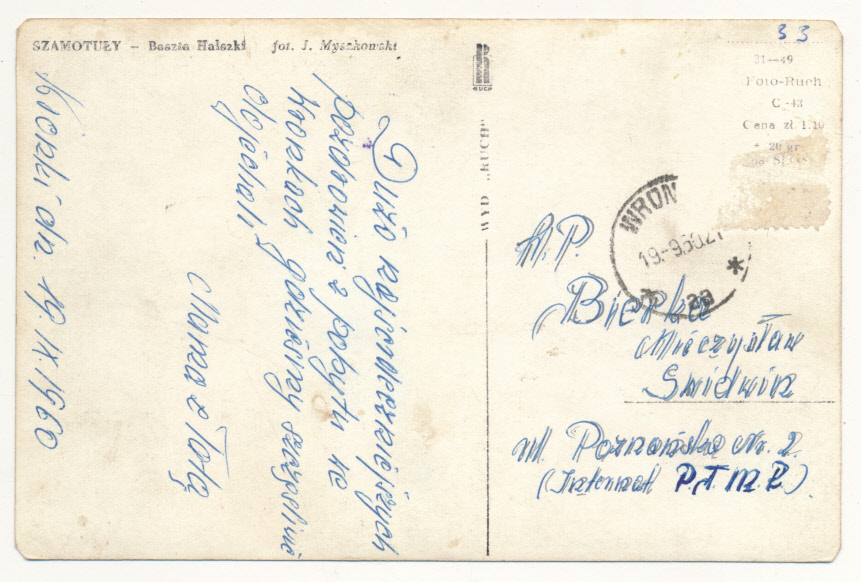 SZAMOTUŁY – Baszta Halszki fot. J. Myszkowski
Dużo najserdeczniejszych
pozdrowień z pobytu na
Wronkach gdzieśmy szczęśliwie
dojechali
Mama z Tatą
Wronki dn. 19.IX.1960
WYD „RUCH"
RUCH
33
31—49
Foto-Ruch
C-43
Cena zł 1.10
+ 20 gr
na SFOS
WRON
19.-9.60.21
* aa
W.P.
Bierka
Mieczysław
Świdwin
ul. Poznańska Nr. 2.
(Internat P.T.M.R.)